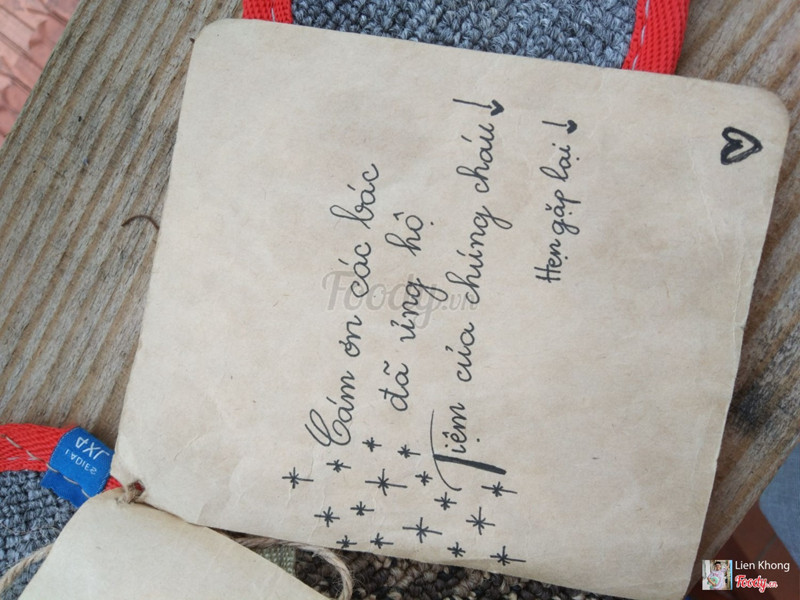 Cám ơn các bác
đã ủng hộ
Tiệm của chúng cháu
Hẹn gặp lại
Foody.vn
JXA
Lien Khong
Foody.vn